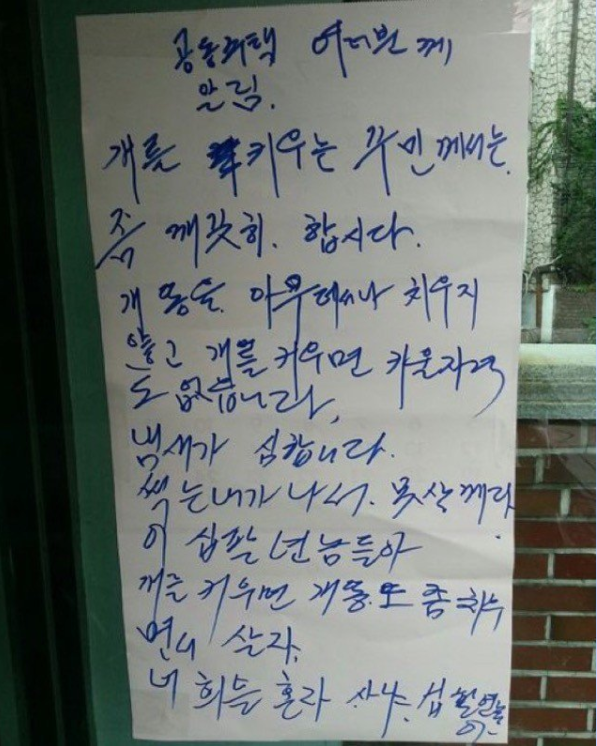 공동주택 여러분께
알림.
개를 키우는 주민께서는.
좀 깨끗히. 합시다.
개 똥을. 아무데서나 치우지
않고 개를 키우면 카울자격
도 없습니다,
냄새가 심합니다.
썩는내가 나서. 못살께다.
이 십팔 년놈들아
개를 키우면 개똥또 좀 치우
면서 살자.
너희들 혼라 사냐. 십팔연놈
아